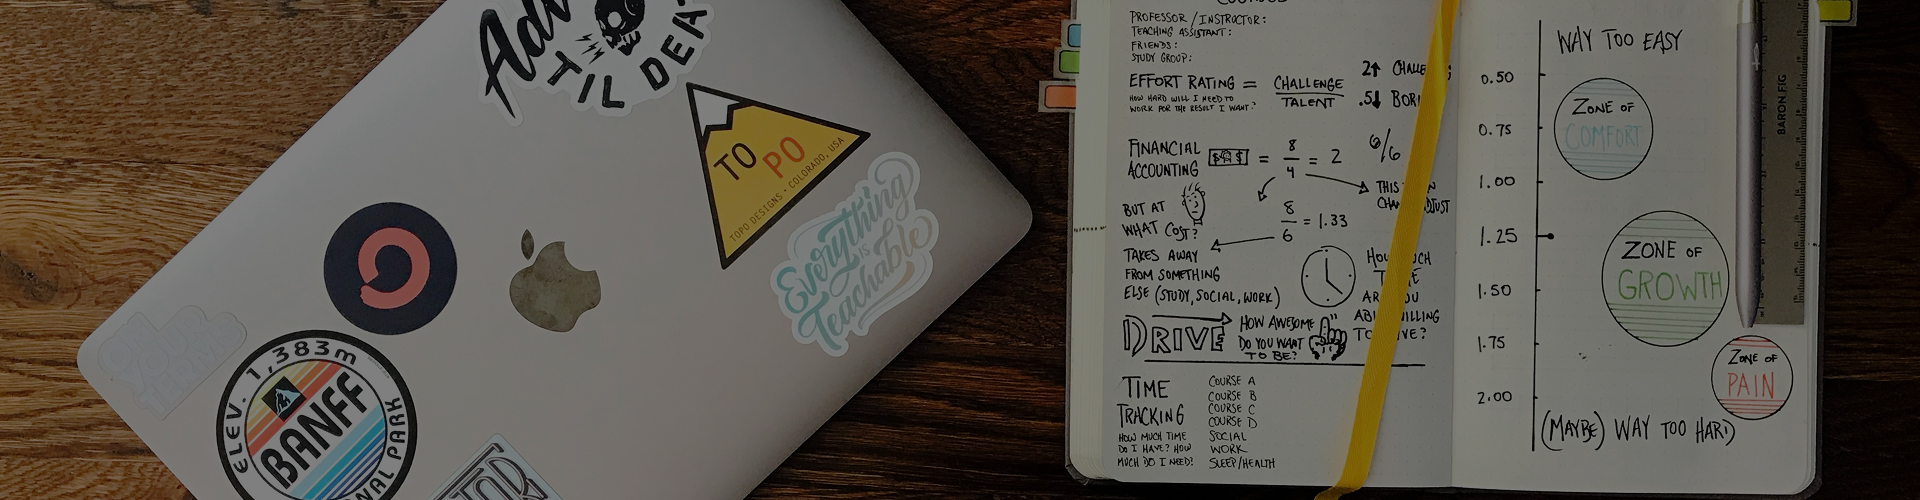 TIL DEA
TO
PO
TOPO DESIGNS • COLORADO, USA
Everything
is
Teachable
ELEV. 1,383m
BANFF
NAL PARK
PROFESSOR / INSTRUCTOR:
TEACHING ASSISTANT:
FRIENDS:
STUDY GROUP:
EFFORT RATING = CHALLENGE
TALENT
HOW HARD WILL I NEED TO
WORK FOR THE RESULT I WANT?
2↑ CHALLE
.5↓ BORI
FINANCIAL
ACCOUNTING
= 8/4 = 2
6/6
BUT AT
WHAT COST?
8/6 = 1.33
TAKES AWAY
FROM SOMETHING
ELSE (STUDY, SOCIAL, WORK)
DRIVE
HOW AWESOME
DO YOU WANT
TO BE?
TIME
TRACKING
HOW MUCH TIME
DO I HAVE? HOW
MUCH DO I NEED?
COURSE A
COURSE B
COURSE C
COURSE D
SOCIAL
WORK
SLEEP/HEALTH
WAY TOO EASY
0.50
0.75
1.00
1.25
1.50
1.75
2.00
ZONE OF
COMFORT
ZONE OF
GROWTH
ZONE OF
PAIN
(MAYBE) WAY TOO HARD
BARON FIG